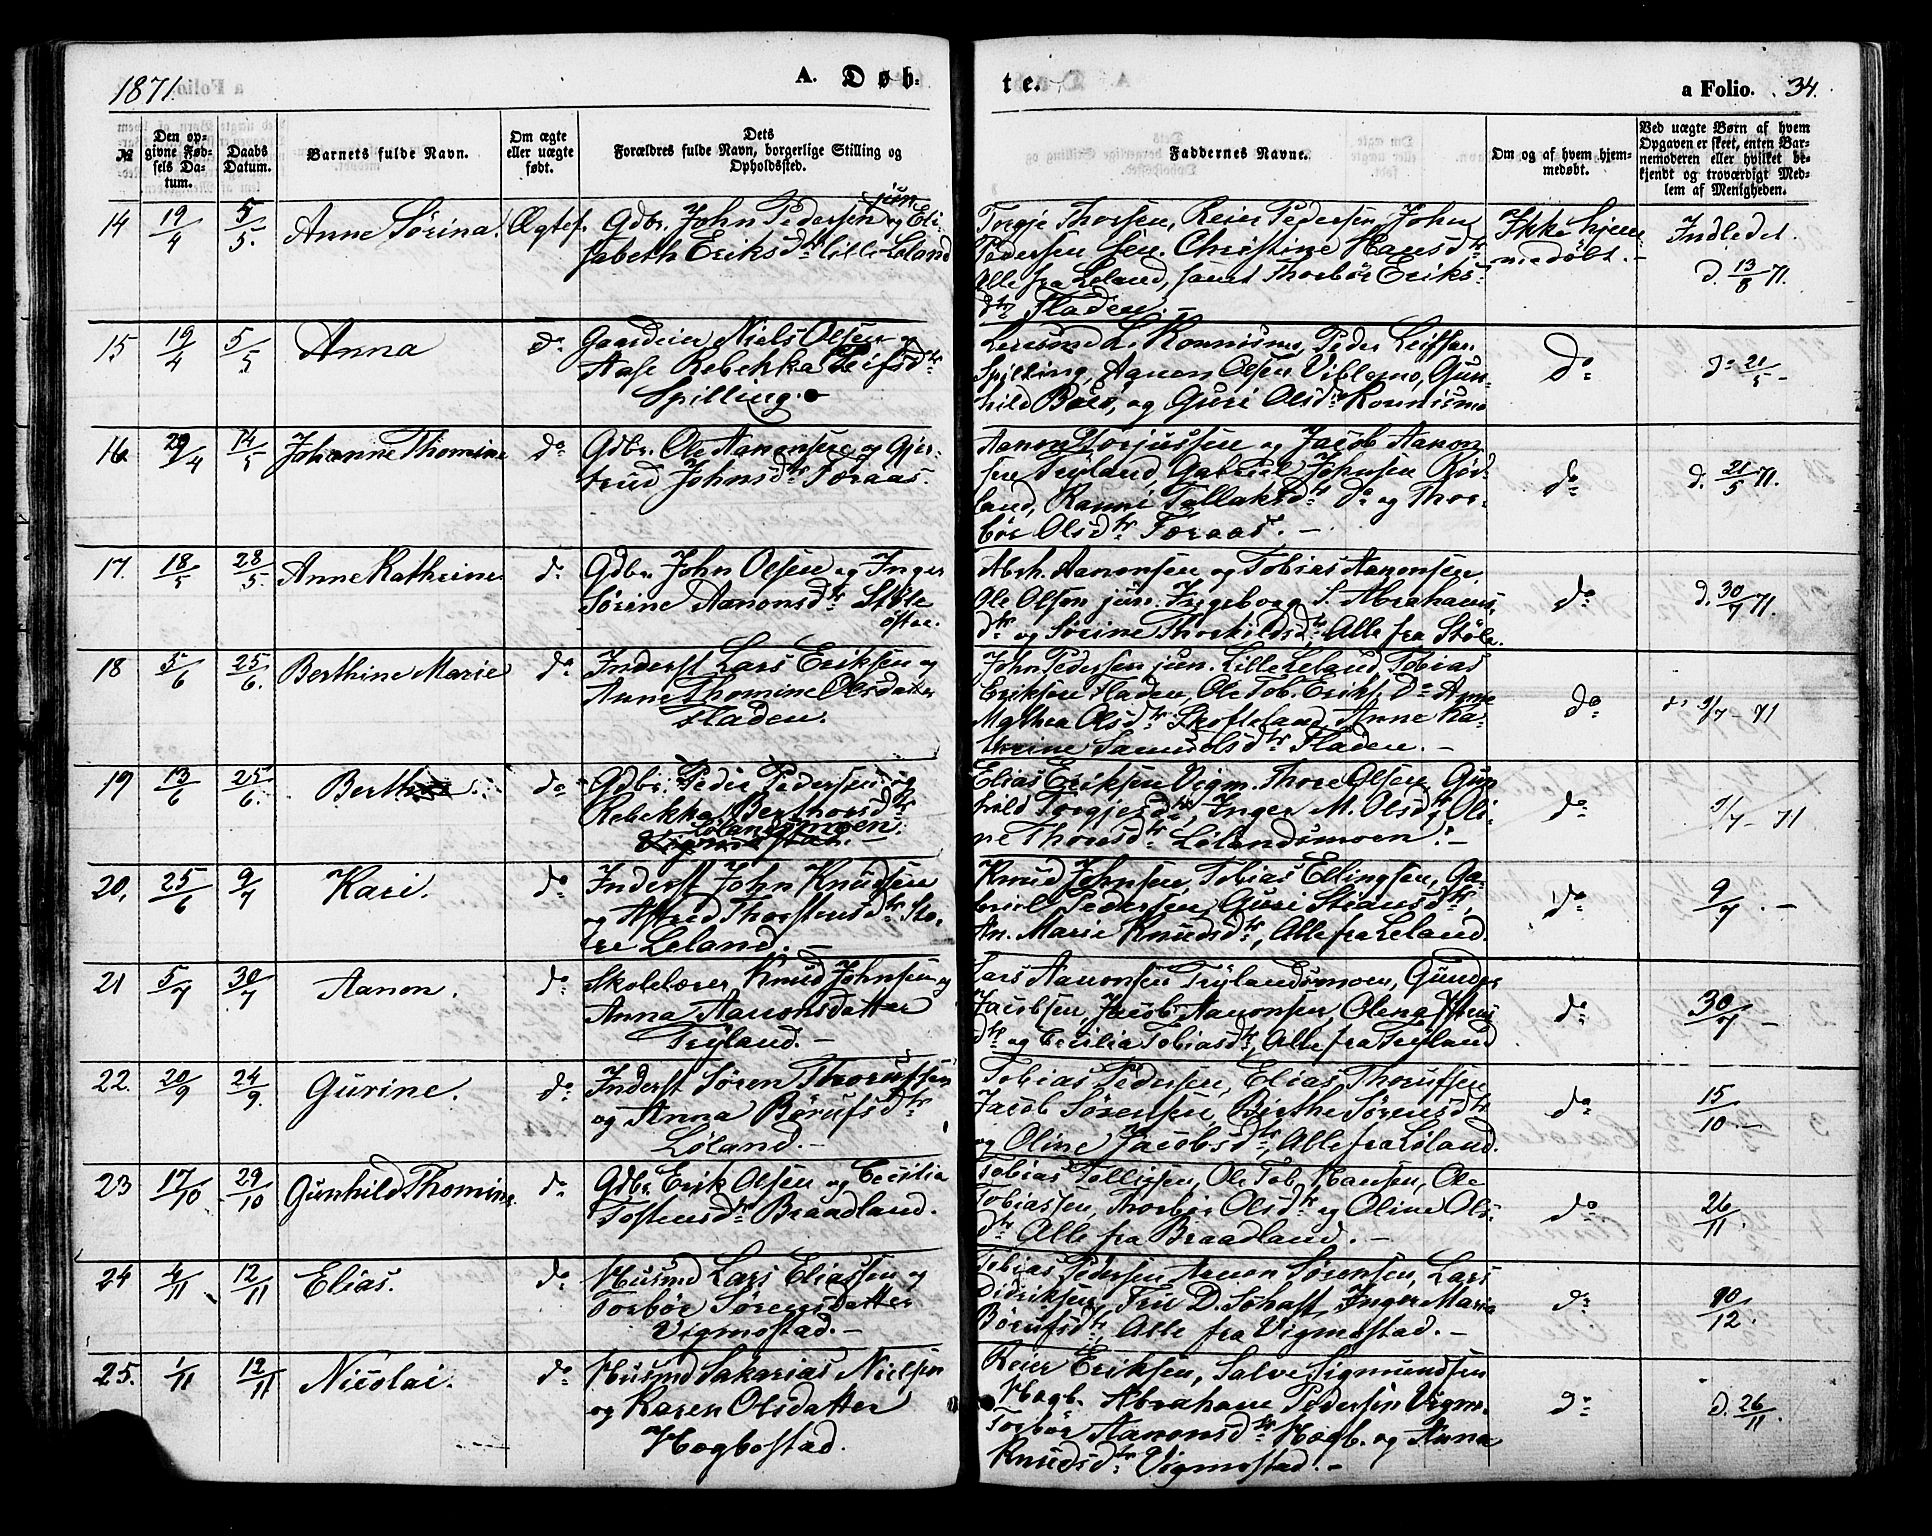 1871.
A. Døb-
te.
a Folio. 34.
№
Den op-
givne Fød-
sels Da-
tum.
Daabs
Datum.
Barnets fulde Navn.
Om ægte
eller uægte
født.
Dets
Forældres fulde Navn, borgerlige Stilling og
Opholdssted.
Faddernes Navne.
Om og af hvem hjem-
medøbt.
Ved uægte Børn af hvem
Opgaven er skeet, enten Bar-
nemoderen eller hvilket be-
kjendt og troværdigt Med-
lem af Menigheden.
14 19/4 5/5. Anne Sørina. Ægtef.
Gdbr. John Pedersen jun. og Eli-
sabeth Eriksdtr Lille Leland
Torgje Thorsen, Reier Pedersen, John
Pedersen sen. Christine Hansdtr
Alle fra Leland, samt Thorbør Eriks-
dtr Fladen. –
Ikke hjem-
medøbt. –
Indledet.
d. 13/8 71.
15 19/4 5/5. Anna do
Gaardeier Niels Olsen og
Aase Rebekka Leifsdtr
Spilling.
L. Konnismo, Peder Leifsen
Spilling, Aanon Olsen Viblemo, Gun-
hild Bue, og Guri Olsdtr Konnismo
do
do 21/5 –
16. 29/4 14/5 Johanne Thomine do
Gdbr. Ole Aanonsen og Gjer-
trud Johnsdtr Foraas.
Aanon Torjussen og Jacob Aanon-
sen Tryland, Gabriel Johnsen Rød-
land, Ranni Tallaksdtr do og Thor-
bør Olsdtr Foraas. –
do
d. 21/5 71.
17. 18/5 28/5. Anne Kathrine do
Gdbr. John Olsen og Inger
Sørine Aanonsdtr Støle
østre.
Abrh. Aanonsen og Tobias Aanonsen,
Ole Olsen jun. Ingeborg S. Abrahams-
dtr og Sørine Thorkildsdtr, Alle fra Støle.
do
d. 30/7 71.
18 5/6 25/6. Berthine Marie do
Inderst Lars Eriksen og
Anne Thomine Olsdatter
Fladen.
John Pedersen jun. Lille Leland, Tobias
Eriksen Fladen, Ole Tob. Eriks. do Anne
Mathea Olsdtr Skofteland, Anne Ka-
thrine Samuelsdtr Fladen. –
do
do 9/7 – 71
19 13/6 25/6. Berthe do
Gdbr. Peder Pedersen og
Rebekka Berthorsdtr
Lølandsmoen.
Elias Eriksen Vigm. Thore Olsen, Gun-
hild Torgjesdtr, Inger M. Olsdtr, Oli-
ne Thorsdtr Lølandsmoen. –
do
9/7 – 71
20. 25/6 9/7 Kari. do
Inderst John Knudsen
og Astred Thorstensdtr Sto-
re Leland. –
Knud Johnsen, Tobias Ellingsen, Ga-
briel Pedersen, Guri Stiansdtr,
An. Marie Knudsdtr, Alle fra Leland.
do
9/7. –
21 5/7 30/7 Aanon. do
Skolelærer Knud Johnsen og
Anna Aanonsdatter
Tryland. –
Lars Aanonsen Trylandsmoen, Gunder
Jacobsen, Jacob Aanonsen, Olena
dtr og Cecilia Tobiasdtr, Alle fra Tryland
do
30/7 –
22. 20/9 24/9. Gurine. do
Inderst Søren Thorufsen
og Anna Børufsdtr
Løland. –
Tobias Pedersen, Elias Thorufsen
Jacob Sørensen, Birthe Sørensdtr
og Oline Jacobsdtr, Alle fra Løland.
do
15/10 –
23 17/10 29/10 Gunhild Thomine do
Gdbr. Erik Olsen og Cecilia
Tostensdtr Braadland.
Tobias Tollisen, Ole Tob. Hansen, Ole
Tobiassen, Thorbør Olsdtr og Oline Ols-
dtr Alle fra Braadland. –
do
26/11.
24 4/11 12/11 Elias. do
Husmd Lars Eliassen og
Torbør Sørensdatter
Vigmostad. –
Tobias Pedersen Aanon Sørensen, Lars
Didriksen, Inger Maria
Børufsdtr, Alle fra Vigmostad. –
do
10/12.
25. 1/11 12/11 Nicolai. do
Husmd Sakarias Nielsen
og Karen Olsdatter
Hægbostad.
Reier Eriksen, Salve Sigmundsen
Hægb. Abraham Pedersen Vigm.
Torbør Aanonsdtr Hægb. og Anna
Knudsdtr Vigmostad. –
do
d. 26/11.